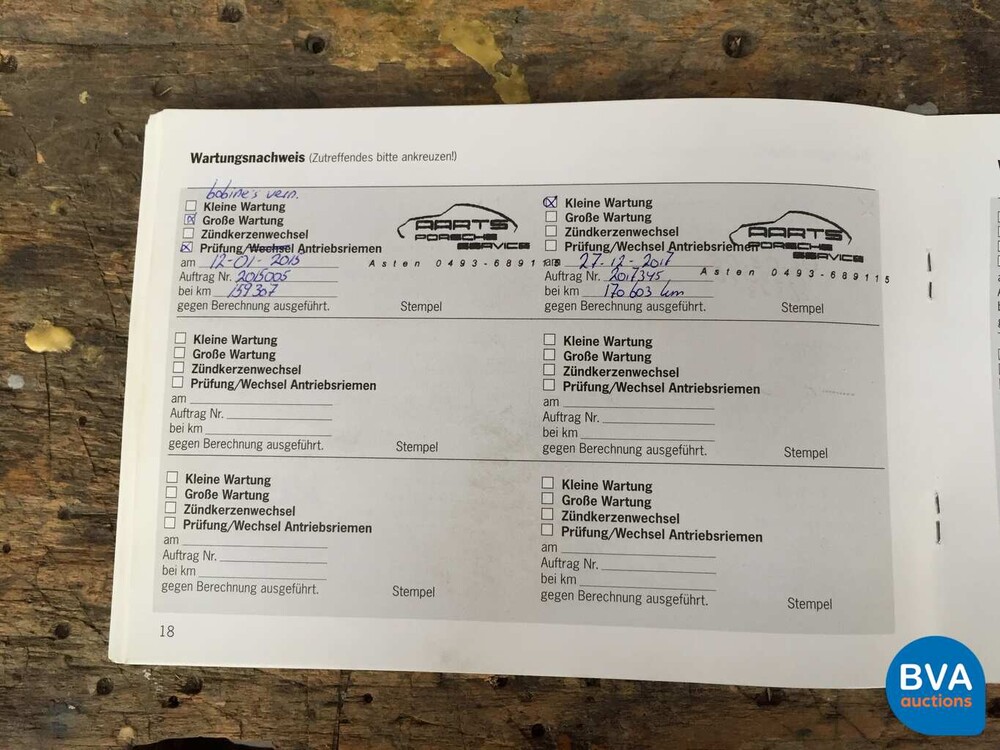 Wartungsnachweis (Zutreffendes bitte ankreuzen!)
bobine's vern.
Kleine Wartung
Große Wartung
Zündkerzenwechsel
Prüfung/Wechsel Antriebsriemen
am 12-01-2015
Auftrag Nr. 2015005
bei km 159307
gegen Berechnung ausgeführt.
Stempel
AARTS
PORSCHE
SERVICE
Asten 0493-689115
Kleine Wartung
Große Wartung
Zündkerzenwechsel
Prüfung/Wechsel Antriebsriemen
am 27-12-2017
Auftrag Nr. 2017345
bei km 170603 km
gegen Berechnung ausgeführt.
Stempel
AARTS
PORSCHE
SERVICE
Asten 0493-689115
Kleine Wartung
Große Wartung
Zündkerzenwechsel
Prüfung/Wechsel Antriebsriemen
am
Auftrag Nr.
bei km
gegen Berechnung ausgeführt.
Stempel
Kleine Wartung
Große Wartung
Zündkerzenwechsel
Prüfung/Wechsel Antriebsriemen
am
Auftrag Nr.
bei km
gegen Berechnung ausgeführt.
Stempel
Kleine Wartung
Große Wartung
Zündkerzenwechsel
Prüfung/Wechsel Antriebsriemen
am
Auftrag Nr.
bei km
gegen Berechnung ausgeführt.
Stempel
Kleine Wartung
Große Wartung
Zündkerzenwechsel
Prüfung/Wechsel Antriebsriemen
am
Auftrag Nr.
bei km
gegen Berechnung ausgeführt.
Stempel
18
BVA
auctions